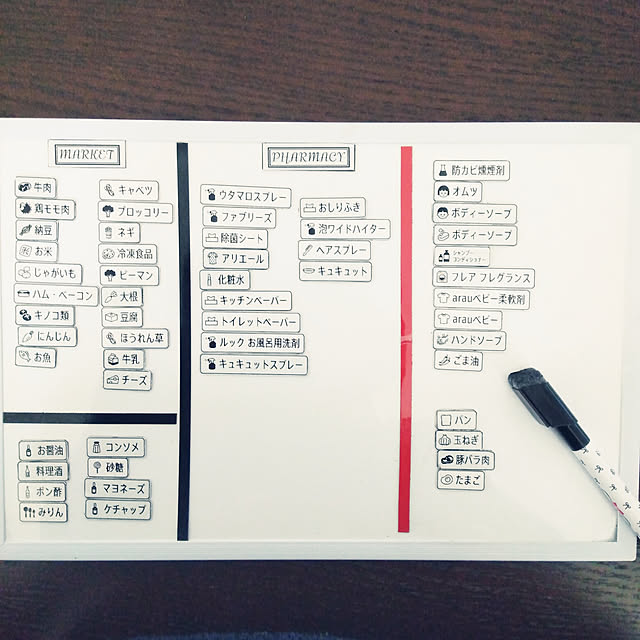 MARKET
牛肉
鶏モモ肉
納豆
お米
じゃがいも
ハム・ベーコン
キノコ類
にんじん
お魚
キャベツ
ブロッコリー
ネギ
冷凍食品
ピーマン
大根
豆腐
ほうれん草
牛乳
チーズ
お醤油
料理酒
ポン酢
みりん
コンソメ
砂糖
マヨネーズ
ケチャップ
PHARMACY
ウタマロスプレー
ファブリーズ
除菌シート
アリエール
化粧水
キッチンペーパー
トイレットペーパー
ルック お風呂用洗剤
キュキュットスプレー
おしりふき
泡ワイドハイター
ヘアスプレー
キュキュット
防カビ燻煙剤
オムツ
ボディーソープ
ボディーソープ
シャンプー
コンディショナー
フレア フレグランス
arauベビー柔軟剤
arauベビー
ハンドソープ
ごま油
パン
玉ねぎ
豚バラ肉
たまご